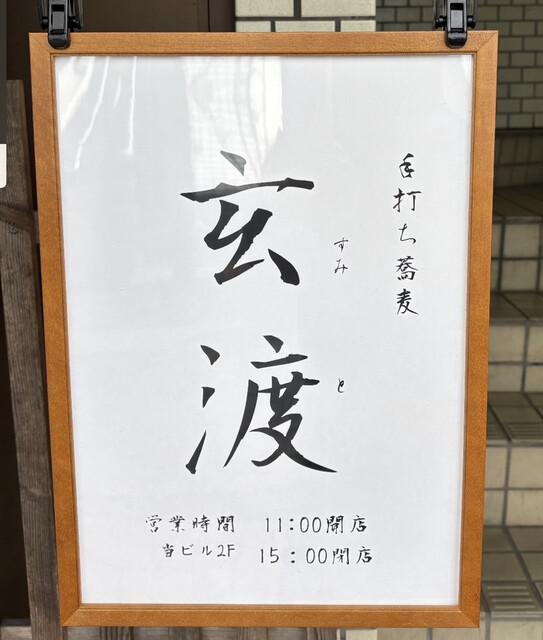 手打ち蕎麦
玄渡
すみと
営業時間 11:00開店
当ビル2F 15:00閉店